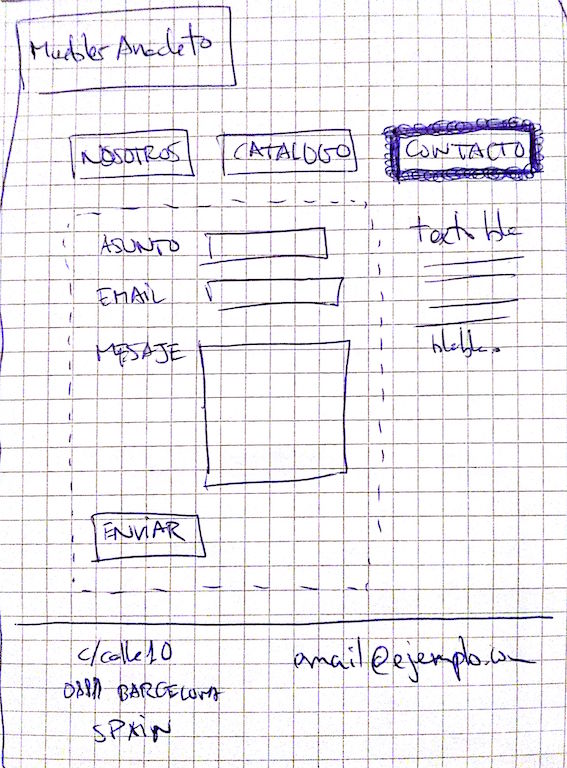 Muebles Anacleto
NOSOTROS CATALOGO CONTACTO
ASUNTO
EMAIL
MESAJE
ENVIAR
text bla
blabla.
c/calle 10
BARCELONA
SPAIN
email@ejemplo.com